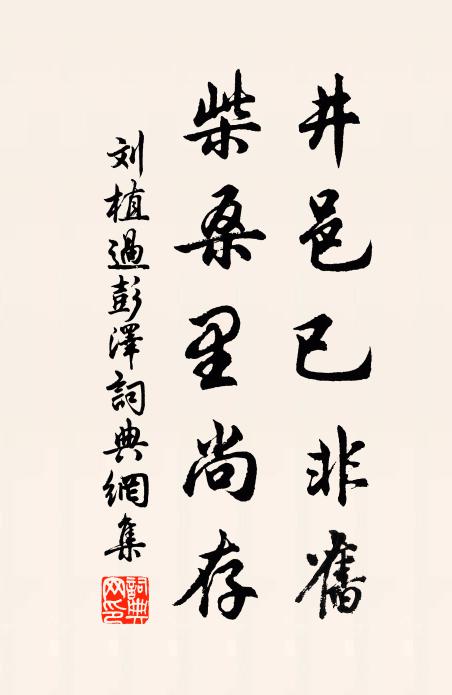 井邑已非舊
柴桑里尚存
刘植過彭澤詞典網集
詞典網印